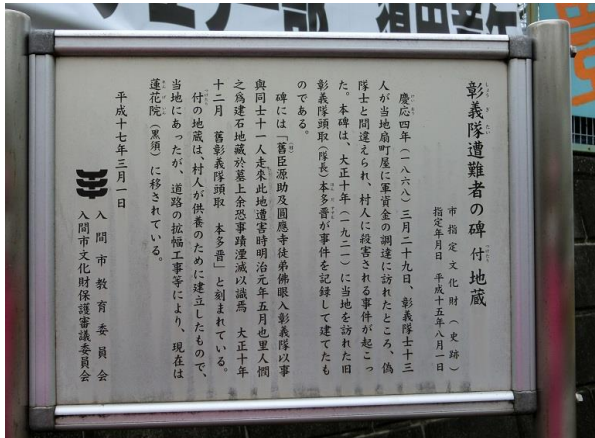 彰義隊遭難者の碑 付 地蔵
市指定文化財(史跡)
指定年月日 平成十五年八月一日
慶応四年(一八六八)三月二十九日、彰義隊士十三
人が当地扇町屋に軍資金の調達に訪れたところ、偽
隊士と間違えられ、村人に殺害される事件が起こっ
た。本碑は、大正十年(一九二一)に当地を訪れた旧
彰義隊頭取(隊長)本多晋が事件を記録して建てたも
のである。
碑には「舊臣源助及圓應寺徒弟佛眼入彰義隊以事
與同士十一人走來此地遭害時明治元年五月也里人憫
之為建石地藏於墓上余恐事蹟湮滅以識焉 大正十年
十二月 舊彰義隊頭取 本多晋」と刻まれている。
付の地蔵は、村人が供養のために建立したもので、
当地にあったが、道路の拡幅工事等により、現在は
蓮花院(黒須)に移されている。
平成十七年三月一日
入間市教育委員会
入間市文化財保護審議委員会